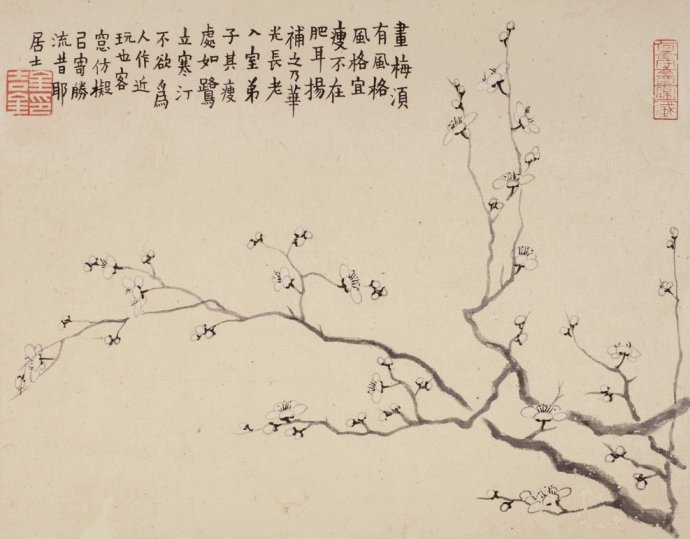 畫梅湏
有風格
風格宜
瘦不在
肥耳揚
補之乃華
光長老
入室弟
子其瘦
處如鷺
立寒汀
不欲爲
人作近
玩也客
窓仿擬
㠯寄勝
流昔耶
居士